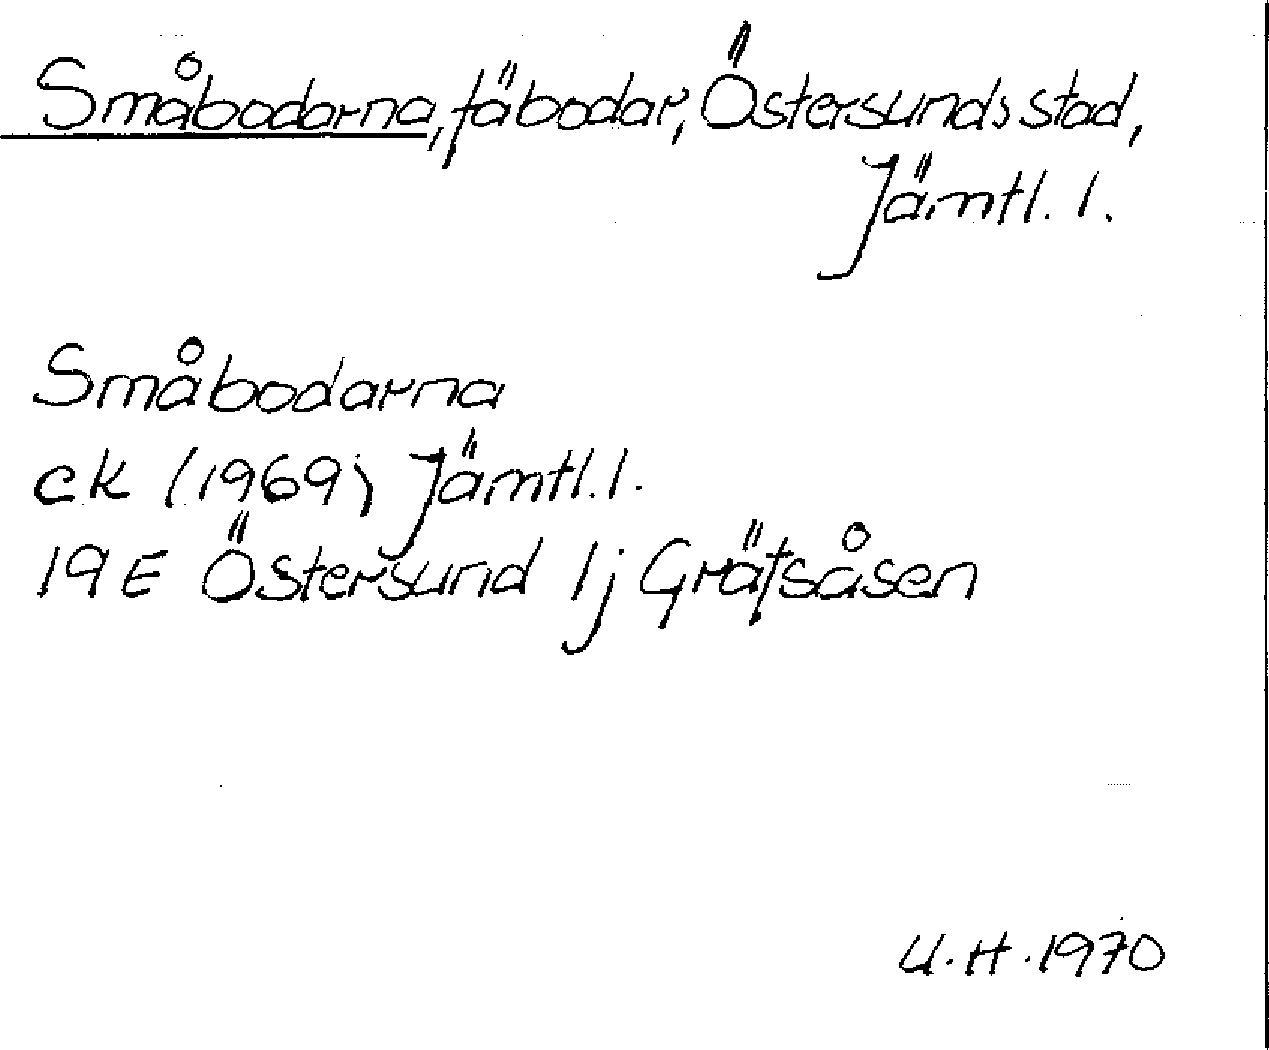 Småbodarna, fäbodar, Östersunds stad,
Jämtl. l.
Småbodarna
ek (1969) Jämtl. l.
19E Östersund 1j Gräfsåsen
U.H. 1970